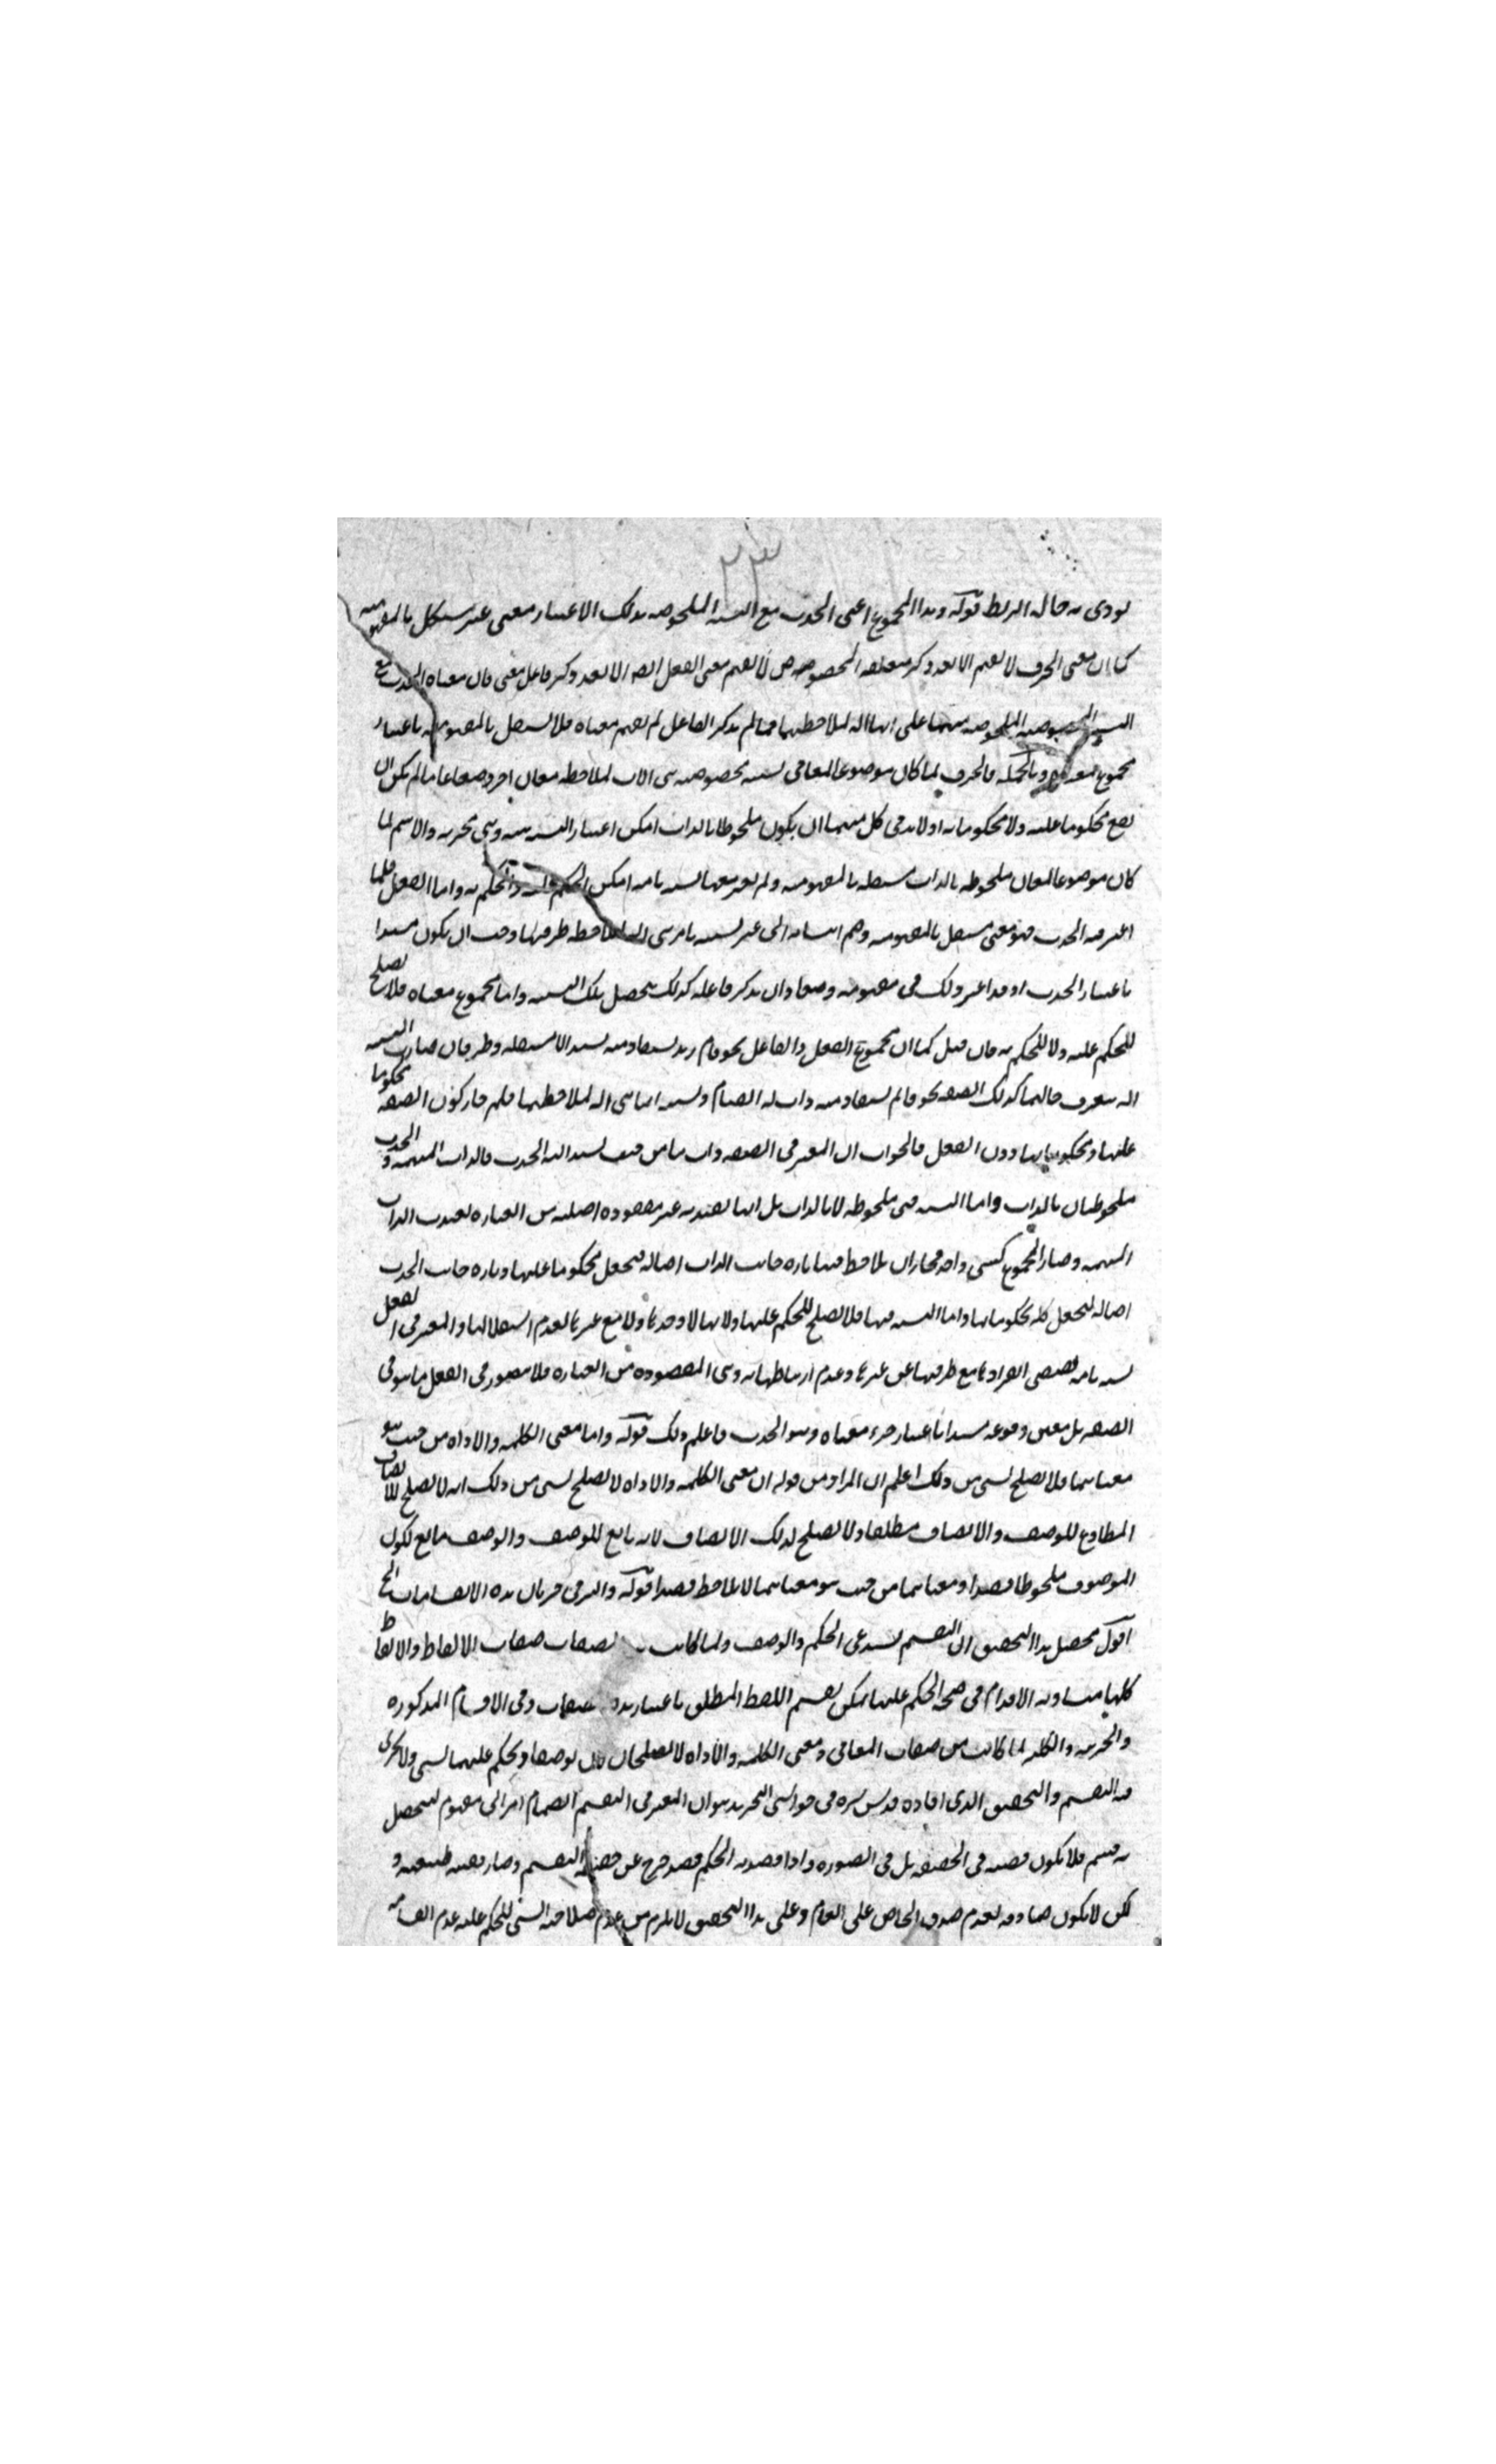 ٢٣
يودى به حاله الربط قوله وهذا المجموع اعنى الحدث مع النسبة الملحوظه بذلك الاعتبار معنى غير مستقل بالمفهوميه
كما ان معنى الحرف لا يفهم الا بعد ذكر متعلقه المخصوص لا يفهم معنى الفعل الا بعد ذكر فاعل معنى فان معناه الحدث مع
النسبة المخصوصة الملحوظه بينهما على انها اله لملاحظتهما فما لم يذكر الفاعل لم يفهم معناه فلا يستقل بالمفهوميه باعتبار
مجموع معناه وبالجمله فالحرف لما كان موضوعا لمعانى نسبيه مخصوصه هى الات لملاحظه معان اخر وضعا عاما لم يكن ان
يقع محكوما عليه ولا محكوما به اذ لا بد فى كل منهما ان يكون ملحوظا بالذات امكن اعتبار النسبة بينه وبين غيره والاسم لما
كان موضوعا لمعان ملحوظه بالذات مستقله بالمفهوميه ولم يعتبر معها نسبه تامه امكن الحكم عليه والحكم به واما الفعل فلما
اعتبر فيه الحدث فهو معنى مستقل بالمفهوميه وضم انتسابه الى غير نسبه تامه هى اله لملاحظه طرفيها وجب ان يكون مسندا
باعتبار الحدث اذ قد اعتبر ذلك فى مفهومه وضعا وان يذكر فاعله كذلك ليحصل تلك النسبه واما مجموع معناه فلا يصلح
للحكم عليه ولا للحكم به فان قيل كما ان مجموع الفعل والفاعل نحو قام زيد يستفاد منه نسبه لا مستقله وطرفان صارت النسبه
اله لتعرف حالهما كذلك الصفه نحو قائم يستفاد منه ذات له القيام ونسبه انما هى اله لملاحظتهما فلم جاز كون الصفه محكوما
عليها ومحكوما بها دون الفعل فالجواب ان المعتبر فى الصفه ذات ما من حيث نسب اليه الحدث فالذات المبهمه والحدث
ملحوظان بالذات واما النسبه فهى ملحوظه لا بالذات بل انها تقييديه غير مقصوده اصليه من العباره لتقييد الذات
المبهمه وصار المجموع كشى واحد فجاز ان يلاحظ فيها تاره جانب الذات اصاله فيجعل محكوما عليها وتاره جانب الحدث
اصاله فيجعل محكوما بها واما النسبه فيها فلا يصلح للحكم عليها ولا بها لا وحدها ولا مع غيرها لعدم استقلالها والمعتبر فى الفعل
نسبه تامه تقتضى انفرادها مع طرفيها عن غيرها وعدم ارتباطها به وهى المقصوده من العباره فلا يتصور فى الفعل ما هو فى
الصفه بل تعين وقوعه مسندا باعتبار جزء معناه وهو الحدث فاعلم ذلك قوله واما معنى الكلمه والاداه من حيث هو
معناهما فلا يصلح لشى من ذلك اعلم ان المراد من قوله ان معنى الكلمه والاداه لا يصلح لشى من ذلك انه لا يصلح للاتصاف
المطاوع للوصف والاتصاف مطلقا ولا يصلح لذلك الاتصاف لانه تابع للوصف والوصف تابع لكون
الموصوف ملحوظا قصدا ومعناهما من حيث هو معناهما لا يلاحظ قصدا قوله والسر فى جريان هذه الانقسامات الخ
اقول محصل هذا التحقيق ان التقسيم يستدعى الحكم والوصف ولما كانت صفات الالفاظ والالفاظ
كلها متساويه الاقدام فى صحه الحكم عليها امكن تقسيم اللفظ المطلق باعتبار هذه الصفات وفى الاقسام المذكوره
والجزئيه والكليه لما كانت من صفات المعانى ومعنى الكلمه والاداه لا يصلحان لان يوصفا ويحكم عليهما بشى ولا يجرى
فيه التقسيم والتحقيق الذى افاده قدس سره فى حواشى التجريد هو ان المعتبر فى التقسيم انضمام امر الى مفهوم ليحصل
به قسم فلا يكون قضيه فى الحقيقه بل فى الصوره واذا قصد به الحكم فقد خرج عن حقيقه التقسيم وصار قضيه طبيعيه و
لكن لا يكون صادقه لعدم صدق الخاص على العام وعلى هذا التحقيق لا يلزم من عدم صلاحيه الشى للحكم عليه عدم انقسامه